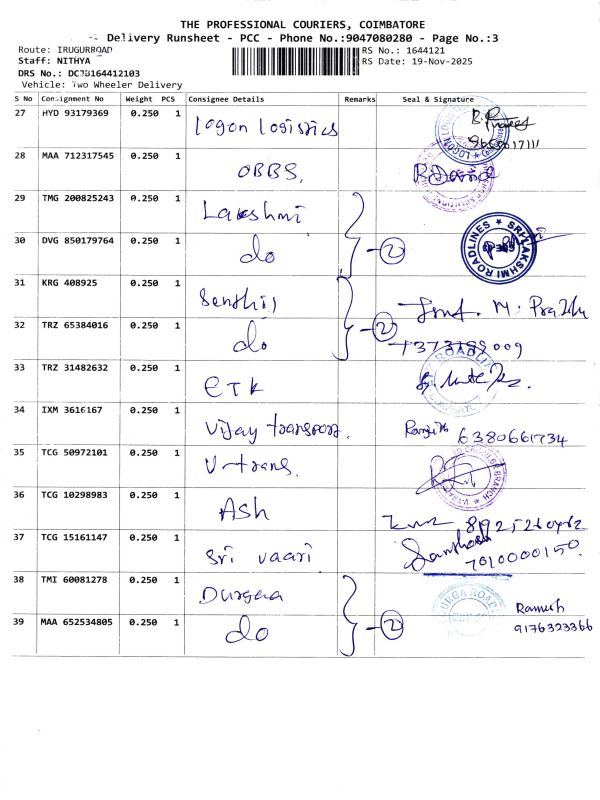 THE PROFESSIONAL COURIERS, COIMBATORE
Delivery Runsheet - PCC - Phone No.:9047080280 - Page No.:3
Route: IRUGURROAD RS No.: 1644121
Staff: NITHYA RS Date: 19-Nov-2025
DRS No.: DCJB164412103
Vehicle: Two Wheeler Delivery
S No Consignment No Weight PCS Consignee Details Remarks Seal & Signature
27 HYD 93179369 0.250 1 Logon Logistics
28 MAA 712317545 0.250 1 OBBS.
29 TMG 200825243 0.250 1 Lakshmi
30 DVG 850179764 0.250 1 do 2 SRI LAKSHMI ROADLINES
31 KRG 408925 0.250 1 Senthil
32 TRZ 65384016 0.250 1 do 2
33 TRZ 31482632 0.250 1 CTK
34 IXM 3616167 0.250 1 Vijay transport. Ranjith 6380661734
35 TCG 50972101 0.250 1 V-trans.
36 TCG 10298983 0.250 1 ASh
37 TCG 15161147 0.250 1 Sri vaari Santhosh 7010000150.
38 TMI 60081278 0.250 1 Durgaa
39 MAA 652534805 0.250 1 do 2 Ramesh
9176323366